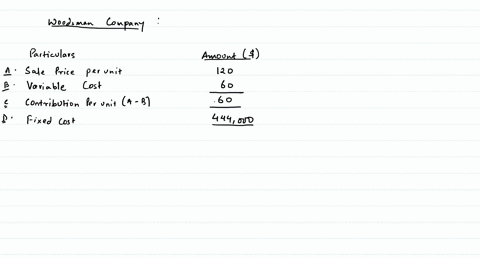 Woodsman Company :
Particulars Amount ($)
A. Sale Price per unit 120
B. Variable Cost 60
C. Contribution Per unit (A-B) 60
D. Fixed Cost 444,000